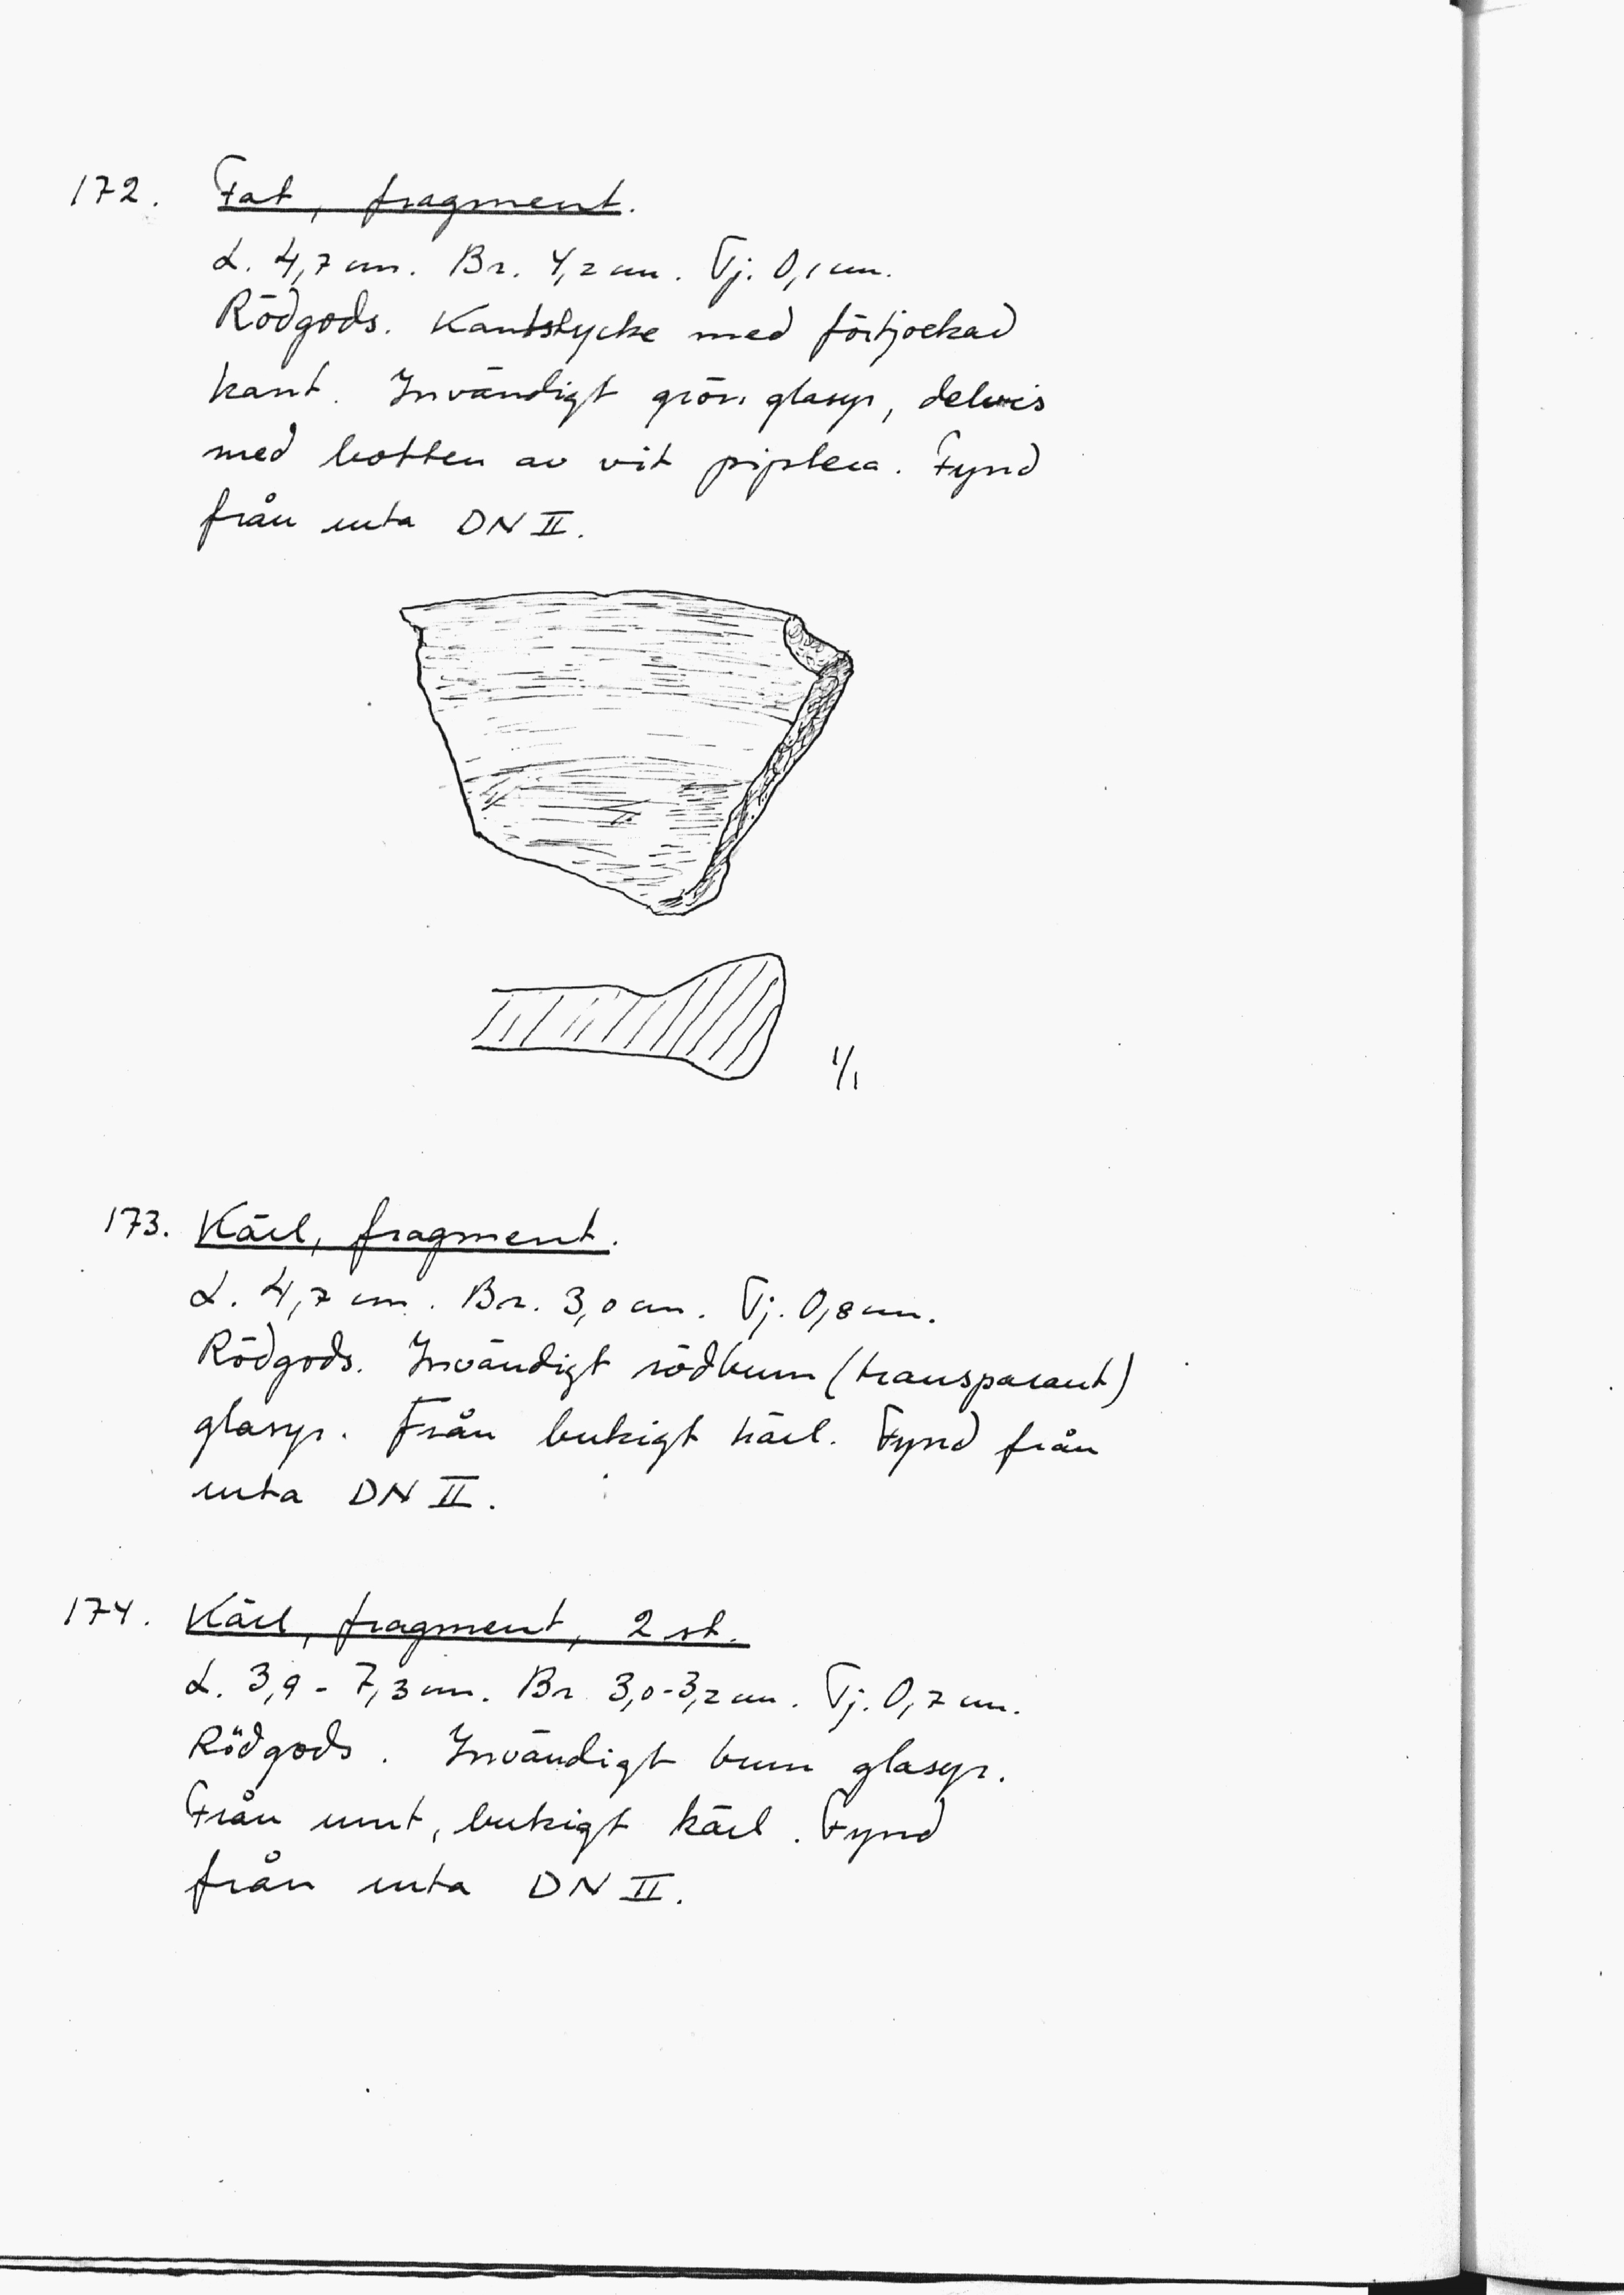 172. Fat, fragment.
L. 4,7 cm. Br. 4,2 cm. Tj. 0,1 cm.
Rödgods. Kantstycke med förtjockad
kant. Invändigt grön glasyr, delvis
med botten av vit piplera. Fynd
från ruta DN II.
1/1
173. Kärl, fragment.
L. 4,7 cm. Br. 3,0 cm. Tj. 0,8 cm.
Rödgods. Invändigt rödbrun (transparant)
glasyr. Från bukigt kärl. Fynd från
ruta DN II.
174. Kärl, fragment, 2 st.
L. 3,9 - 7,3 cm. Br. 3,0-3,2 cm. Tj. 0,7 cm.
Rödgods. Invändigt brun glasyr.
Från runt, bukigt kärl. Fynd
från ruta DN II.